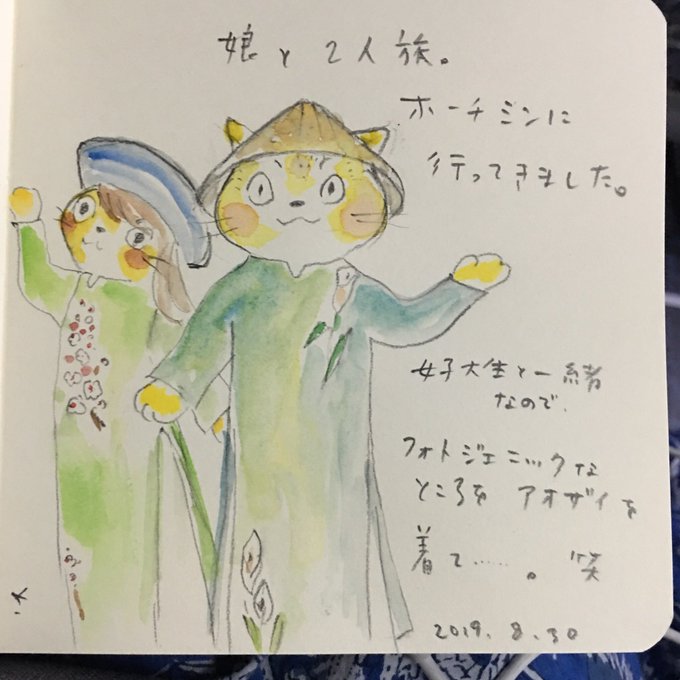 娘と2人旅。
ホーチミンに
行ってきました。
女子大生と一緒
なので、
フォトジェニックな
ところを アオザイを
着て……。笑
2019.8.30